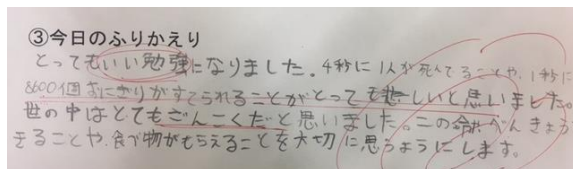 ③今日のふりかえり
とってもいい勉強になりました。4秒に1人が死んでることや、1秒に
8600個おにぎりがすてられることがとっても悲しいと思いました。
世の中はとてもざんこくだと思いました。この命、べんきょうで
きることや、食べ物がもらえることを大切に思うようにします。